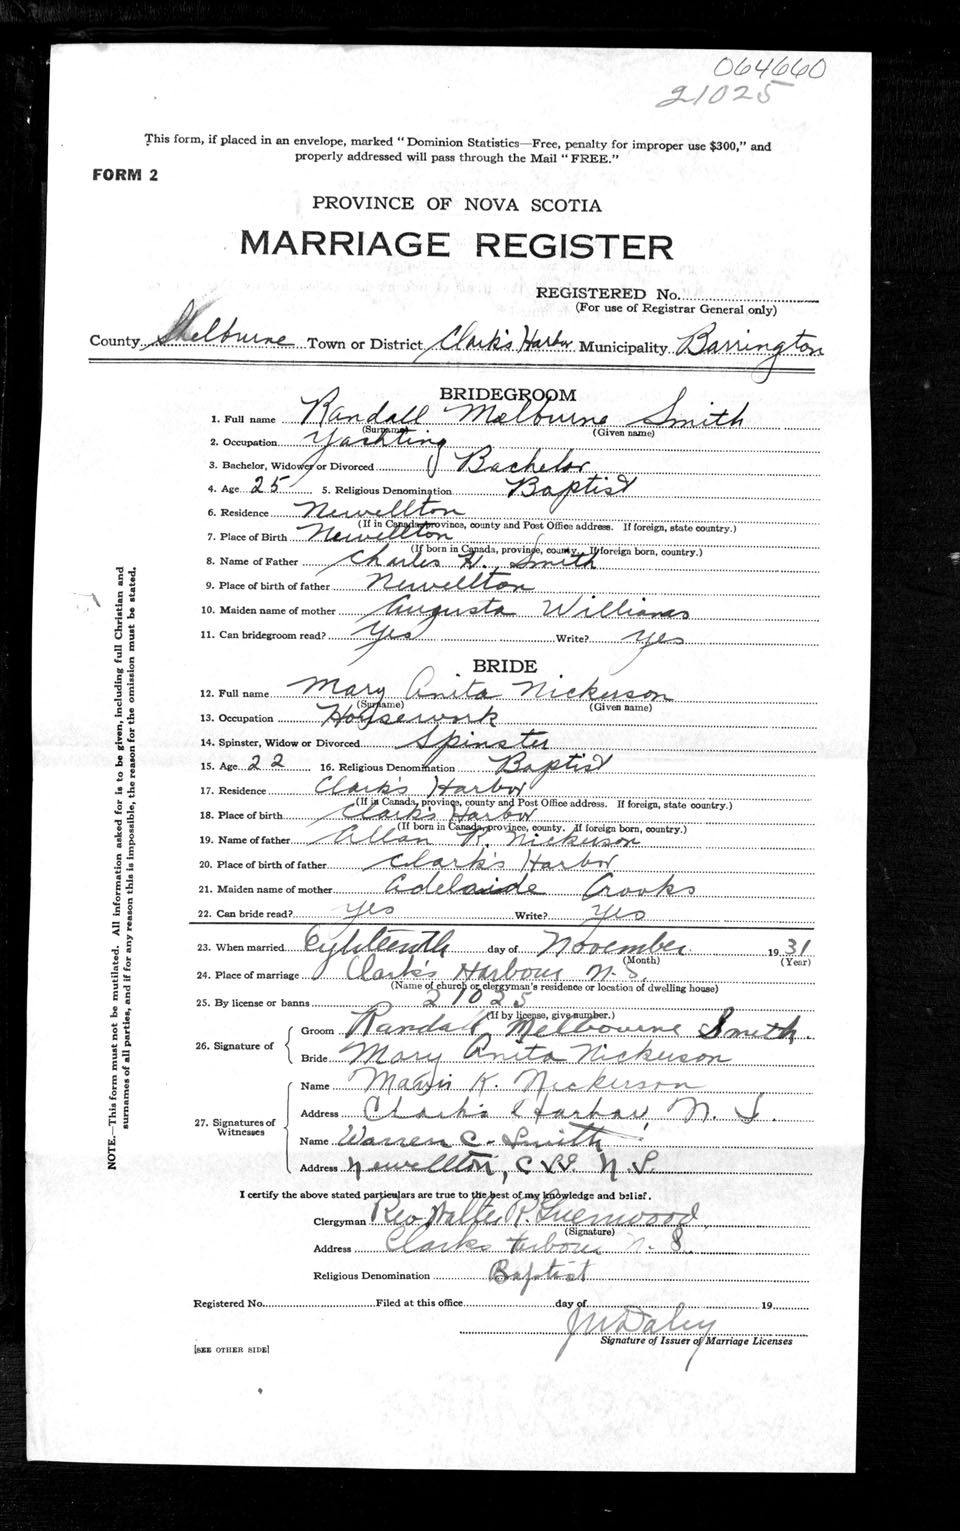 064660
21025
This form, if placed in an envelope, marked "Dominion Statistics—Free, penalty for improper use $300," and
properly addressed will pass through the Mail "FREE."
FORM 2
PROVINCE OF NOVA SCOTIA
MARRIAGE REGISTER
REGISTERED No.
(For use of Registrar General only)
County Shelburne Town or District Clark's Harbor Municipality Barrington
BRIDEGROOM
1. Full name Randall Melbourne Smith
(Surname) (Given name)
2. Occupation Yachting
3. Bachelor, Widower or Divorced Bachelor
4. Age 25 5. Religious Denomination Baptist
6. Residence Newellton
(If in Canada, province, county and Post Office address. If foreign, state country.)
7. Place of Birth Newellton
(If born in Canada, province, county. If foreign born, country.)
8. Name of Father Charles H. Smith
9. Place of birth of father Newellton
10. Maiden name of mother Augusta Williams
11. Can bridegroom read? Yes Write? yes
BRIDE
12. Full name Mary Anita Nickerson
(Surname) (Given name)
13. Occupation Housework
14. Spinster, Widow or Divorced Spinster
15. Age 22 16. Religious Denomination Baptist
17. Residence Clark's Harbor
(If in Canada, province, county and Post Office address. If foreign, state country.)
18. Place of birth Clark's Harbor
(If born in Canada, province, county. If foreign born, country.)
19. Name of father Allan R. Nickerson
20. Place of birth of father Clark's Harbor
21. Maiden name of mother Adelaide Crooks
22. Can bride read? yes Write? Yes
23. When married Eighteenth day of November 1931
(Month) (Year)
24. Place of marriage Clark's Harbour N.S.
(Name of church or clergyman's residence or location of dwelling house)
25. By license or banns 21025
(If by license, give number.)
26. Signature of
Groom Randall Melbourne Smith.
Bride Mary Anita Nickerson
27. Signatures of Witnesses
Name K. Nickerson
Address Clark's Harbor, N. S.
Name Warren C. Smith
Address Newellton, N.S.
I certify the above stated particulars are true to the best of my knowledge and belief.
Clergyman Rev Walter R. Greenwood
(Signature)
Address Clarks Harbour N. S.
Religious Denomination Baptist
Registered No. Filed at this office day of 19
J W Daley
Signature of Issuer of Marriage Licenses
[SEE OTHER SIDE]
NOTE.—This form must not be mutilated. All information asked for is to be given, including full Christian and
surnames of all parties, and if for any reason this is impossible, the reason for the omission must be stated.